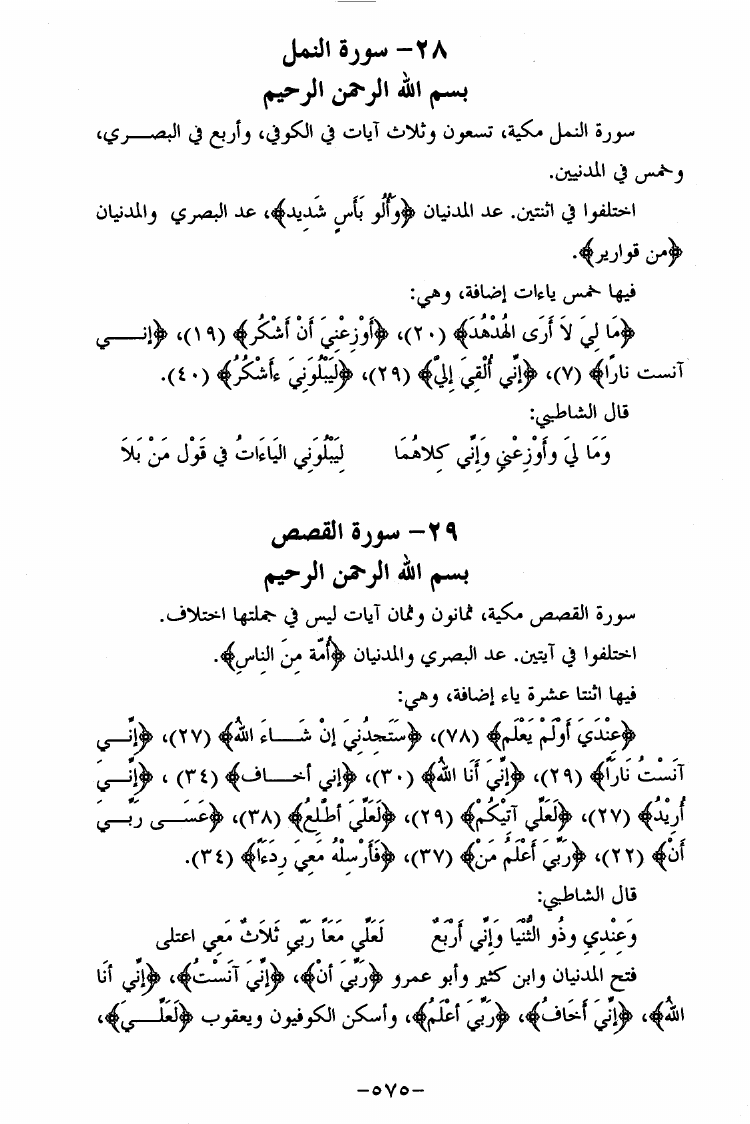 ٢٨- سورة النمل
بسم الله الرحمن الرحيم
سورة النمل مكية، تسعون وثلاث آيات في الكوفي، وأربع في البصري،
وخمس في المدنيين.
اختلفوا في اثنتين. عد المدنيان ﴿وَأُلُو بَأْسٍ شَدِيد﴾، عد البصري والمدنيان
﴿من قوارير﴾.
فيها خمس ياءات إضافة، وهي:
﴿مَا لِيَ لاَ أَرَى الهُدْهُدَ﴾ (٢٠)، ﴿أَوْزِعْنِيَ أَنْ أَشْكُر﴾ (١٩)، ﴿إنـي
آنست نارًا﴾ (٧)، ﴿إِنِّي أُلْقِيَ إِلَيَّ﴾ (٢٩)، ﴿لِيَبْلُوَنِيَ ءأَشْكُرُ﴾ (٤٠).
قال الشاطبي:
وَمَا لِيَ وأَوْزِعْنِي وَإِنِّي كِلاهُمَا لِيَبْلُوَنِي اليَاءَاتُ في قَوْل مَنْ بَلاَ
٢٩- سورة القصص
بسم الله الرحمن الرحيم
سورة القصص مكية، ثمانون وثمان آيات ليس في جملتها اختلاف.
اختلفوا في آيتين. عد البصري والمدنيان ﴿أُمَّة مِنَ الناسِ﴾.
فيها اثنتا عشرة ياء إضافة، وهي:
﴿عِنْدَيَ أَوَلَمْ يَعْلَم﴾ (٧٨)، ﴿سَتَجِدُنِيَ إنْ شَـاءَ اللهُ﴾ (٢٧)، ﴿إنِّـي
آنَسْتُ نَاراً﴾ (٢٩)، ﴿إنِّيَ أَنَا اللهُ﴾ (٣٠)، ﴿إني أخـاف﴾ (٣٤) ، ﴿إنِّـيَ
أُرِيْدُ﴾ (٢٧)، ﴿لَعَلِّي آتِيْكُمْ﴾ (٢٩)، ﴿لَعَلِّيَ أطَّلِعُ﴾ (٣٨)، ﴿عَسَـى رَبِّـيَ
أنْ﴾ (٢٢)، ﴿رَبِّيَ أَعْلَمُ مَنْ﴾ (٣٧)، ﴿فَأَرْسِلْهُ مَعِيَ رِدَءَاً﴾ (٣٤).
قال الشاطبي:
وَعِنْدِي وذُو الثُّنْيَا وَإنِّي أَرْبَعٌ لَعَلِّي مَعَاً رَبِّي ثَلَاثٌ مَعِي اعتلى
فتح المدنيان وابن كثير وأبو عمرو ﴿رَبِّيَ أنْ﴾، ﴿إنِّيَ آنَسْتُ﴾، ﴿إنِّي أنَا
اللهُ﴾، ﴿إنِّيَ أخَافُ﴾، ﴿رَبِّيَ أعْلَمُ﴾، وأسكن الكوفيون ويعقوب ﴿لَعَلِّـيَ﴾،
-٥٧٥-